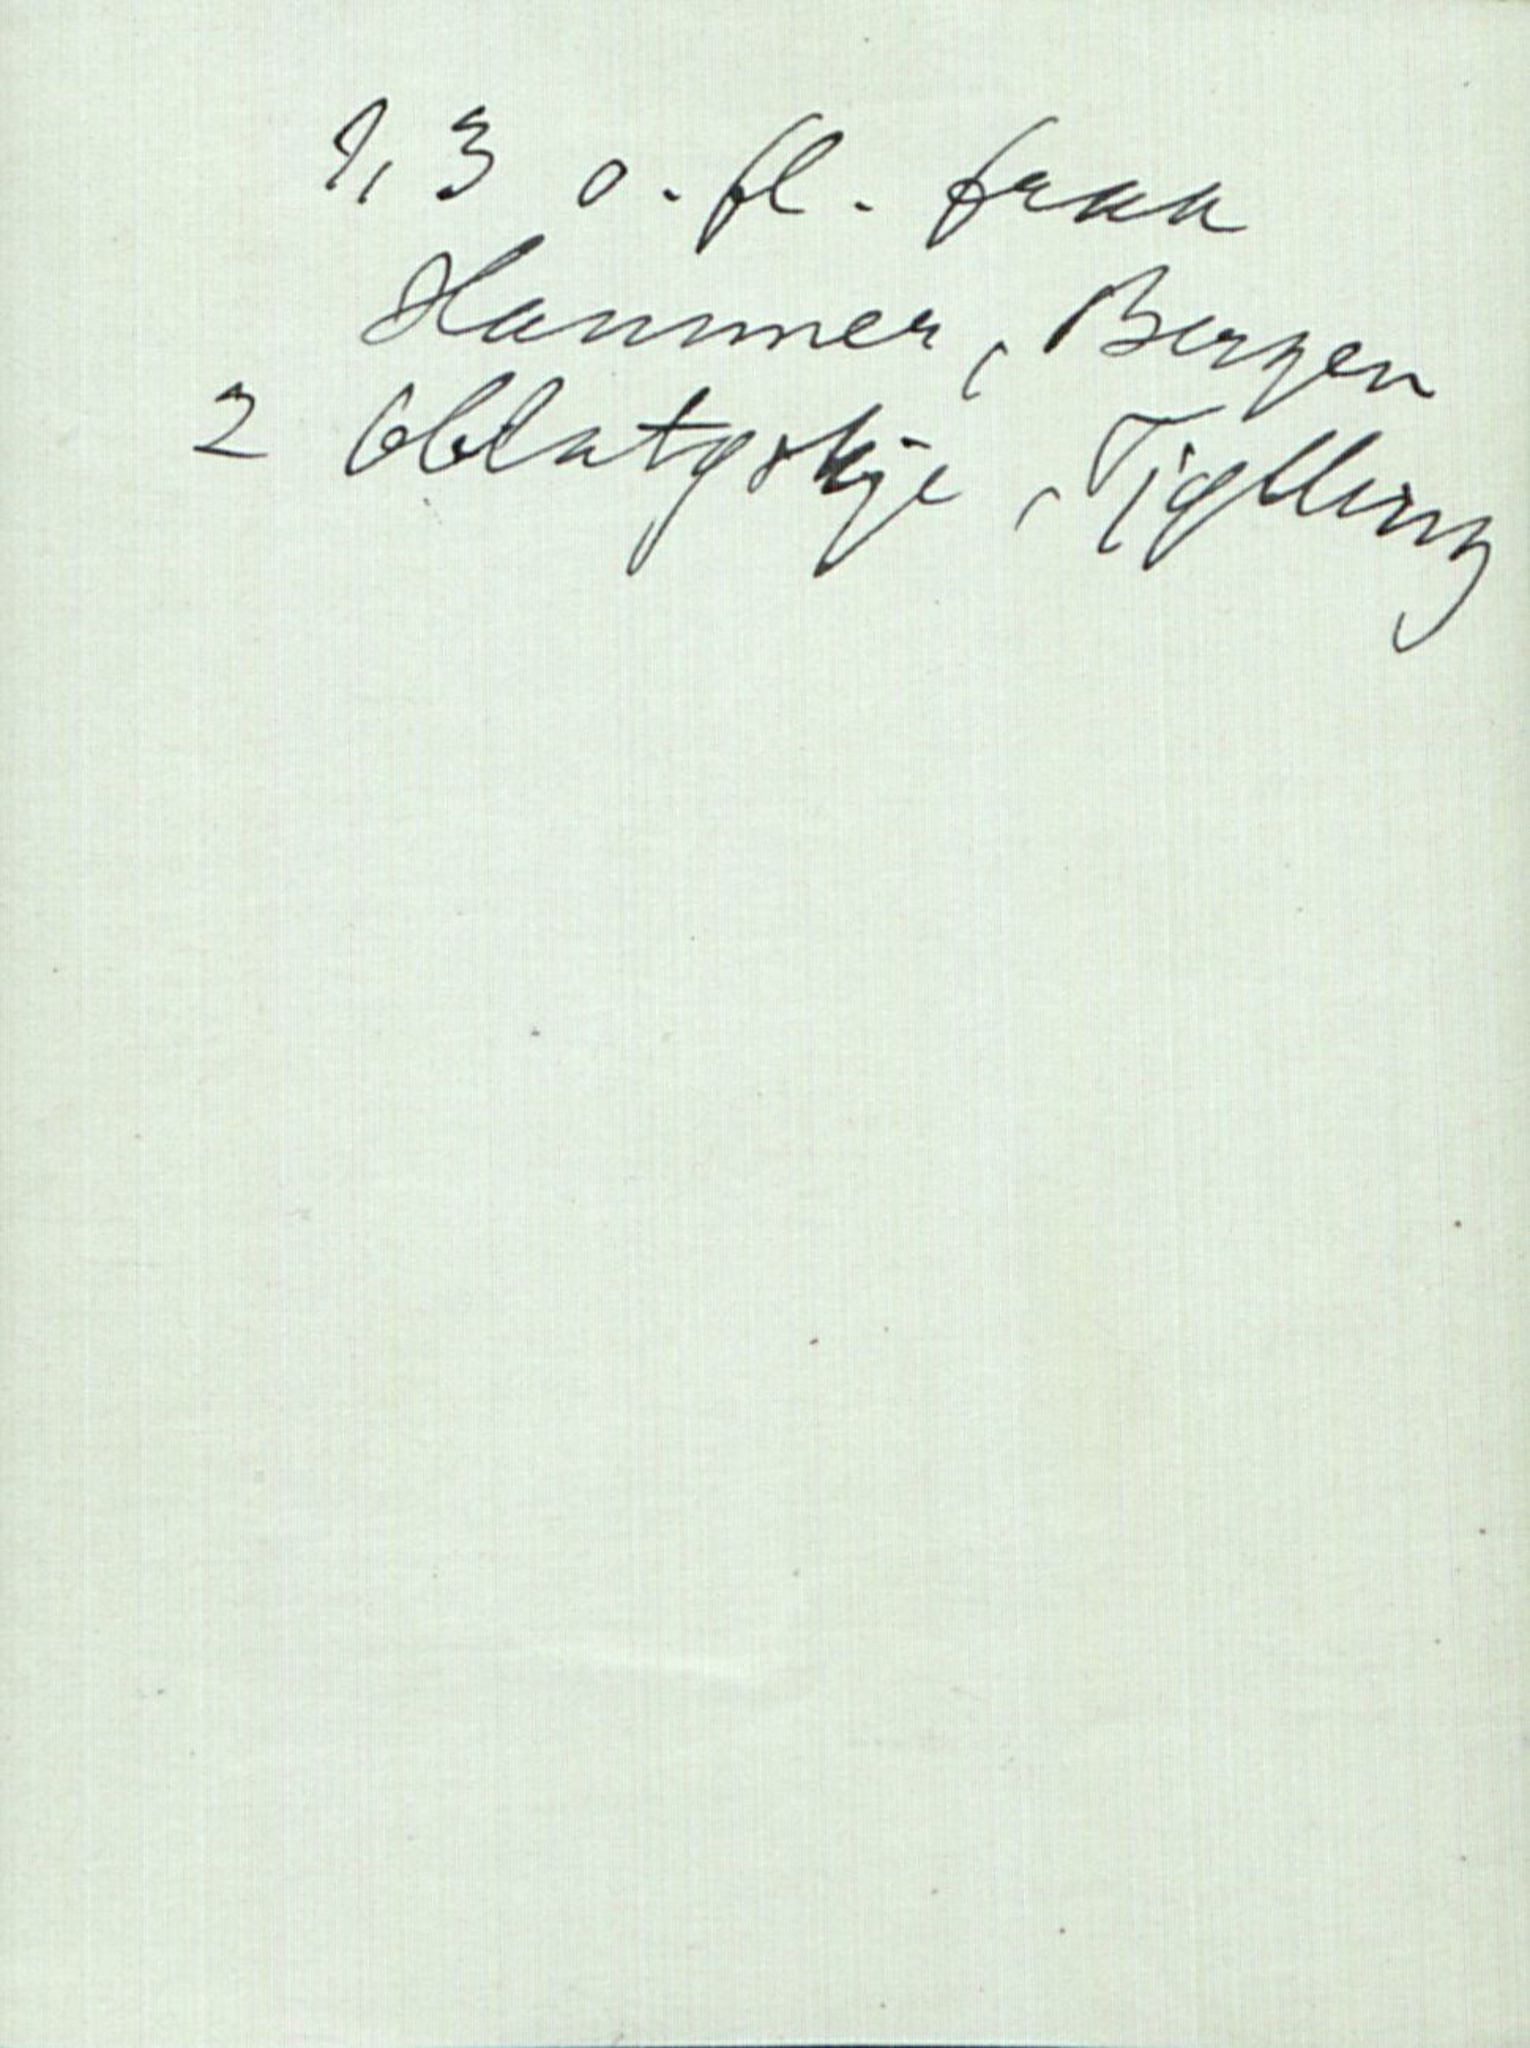 1, 3 o. fl. fraa
Hammer, Bergen
2 Oblatøskje, Tjølling